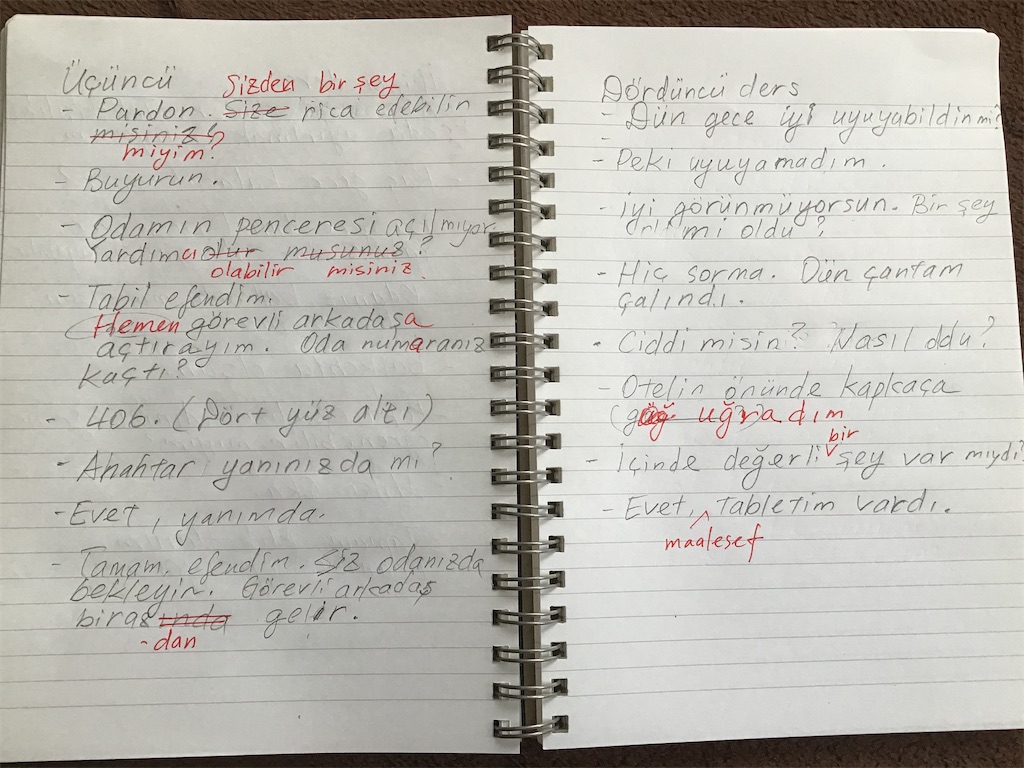 Üçüncü
Sizden bir şey
- Pardon. Size rica edebilin
misiniz?
miyim?
- Buyurun.
- Odamın penceresi açılmıyor.
Yardımcı olur musunuz?
olabilir misiniz
- Tabil efendim.
Hemen görevli arkadaşa
açtırayım. Oda numaranız
kaçtı?
- 406. (Dört yüz altı)
- Anahtar yanınızda mı?
- Evet, yanımda.
- Tamam, efendim. Siz odanızda
bekleyin. Görevli arkadaş
birazında gelir.
-dan
Dördüncü ders
- Dün gece iyi uyuyabildin mi?
-
- Peki uyuyamadım.
- İyi görünmüyorsun. Bir şey
mi oldu?
- Hiç sorma. Dün çantam
çalındı.
- Ciddi misin? Nasıl oldu?
- Otelin önünde kapkaça
uğradım
bir
- İçinde değerli şey var mıydı?
- Evet, tabletim vardı.
maalesef